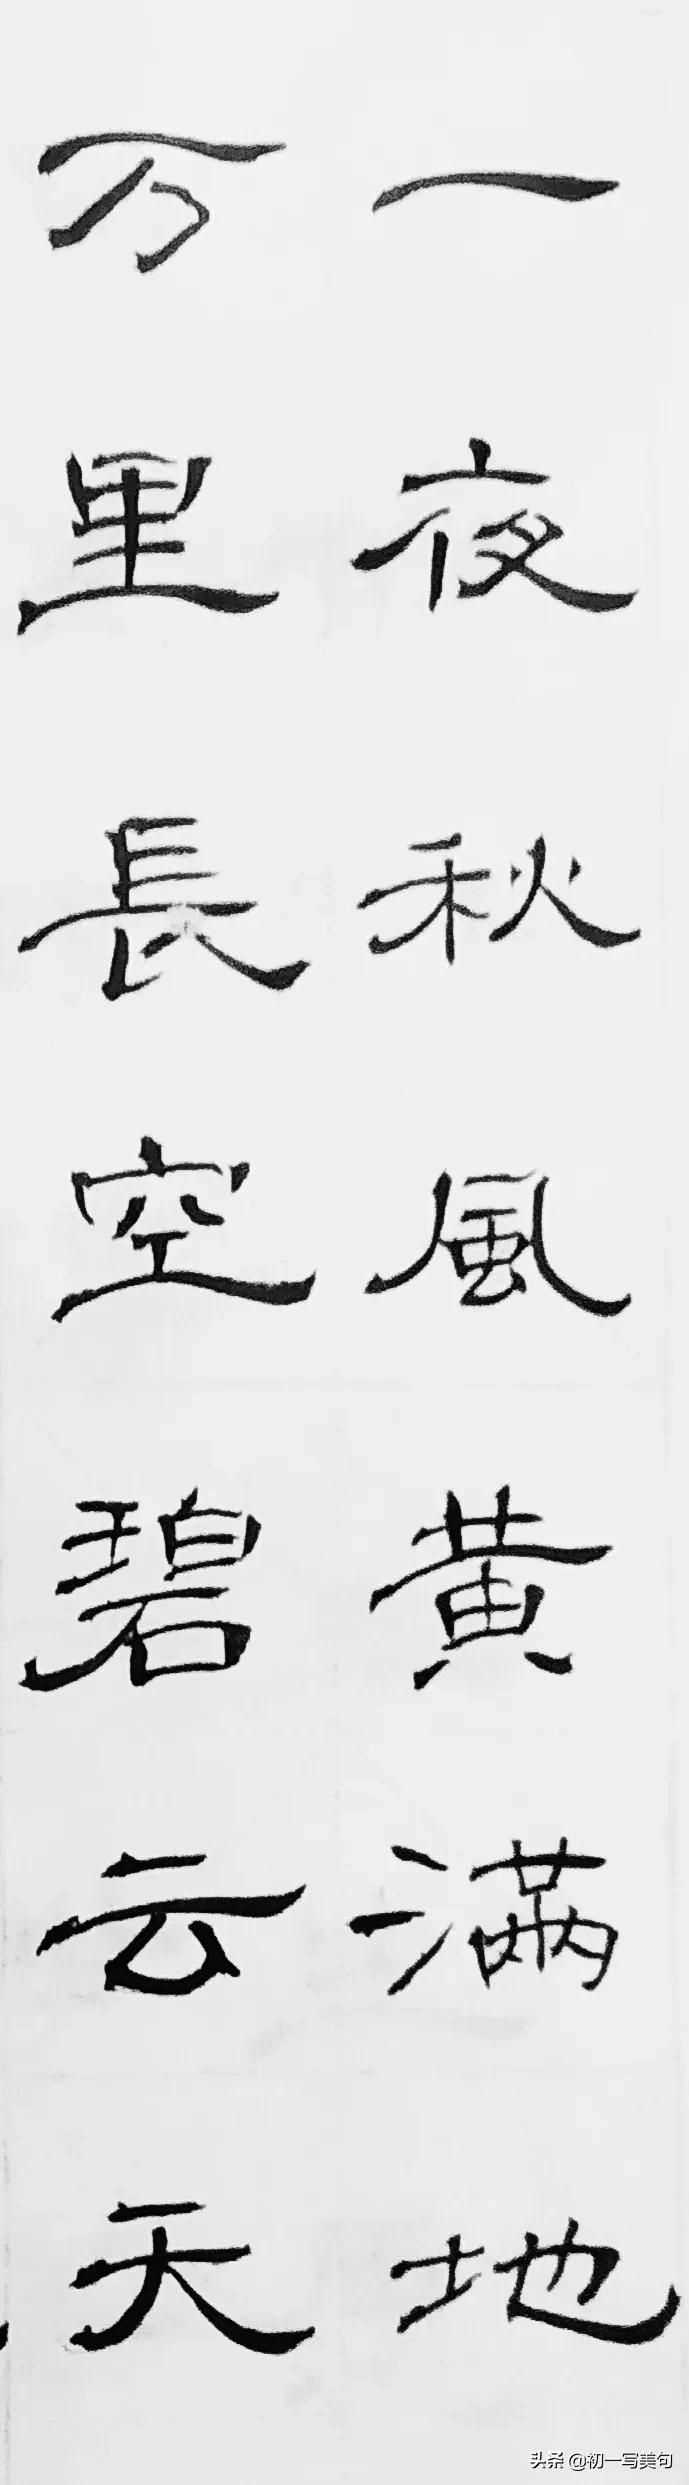 一夜秋風黄满地
万里長空碧云天
头条 @初一写美句